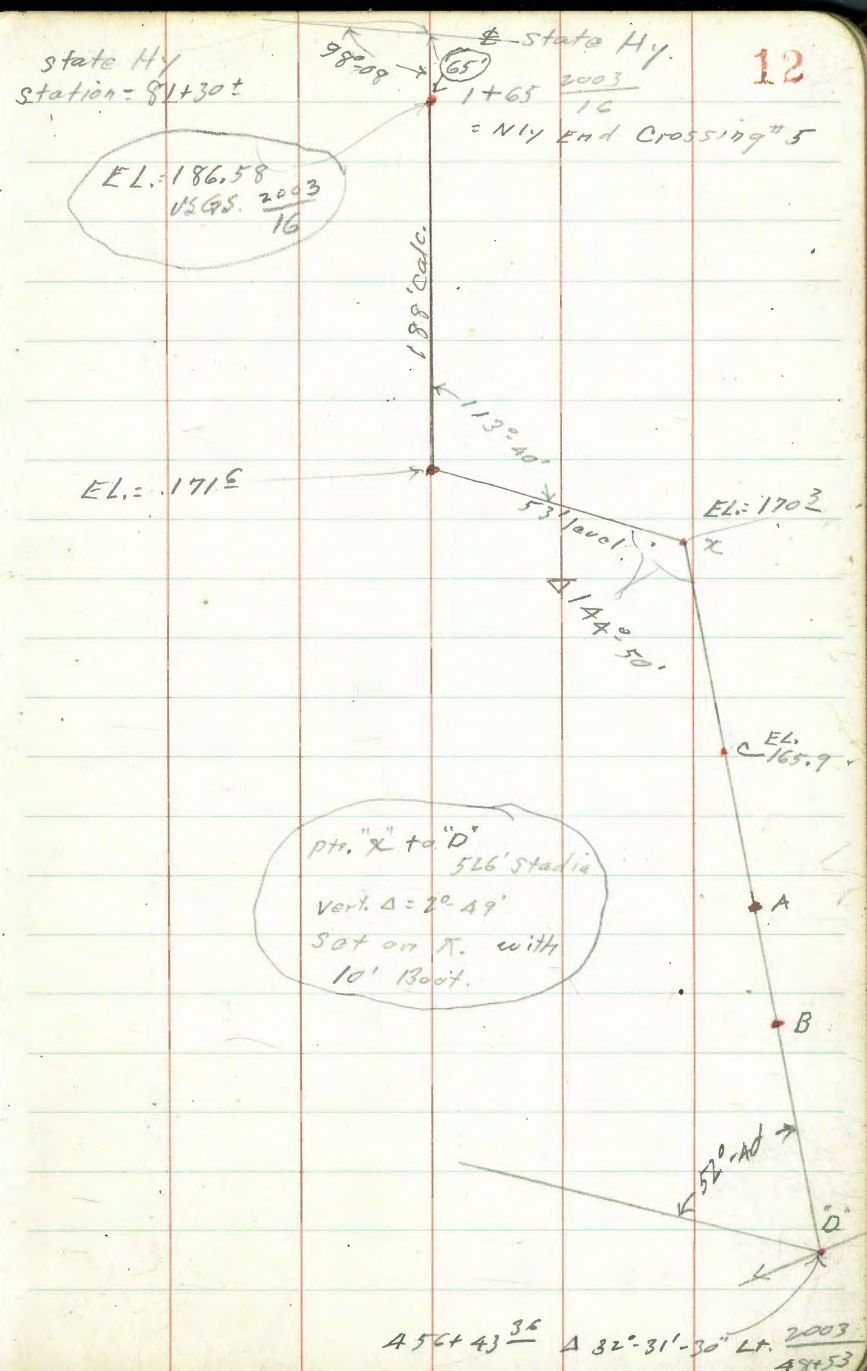 12
state Hy
station = 81+30±
98°-08
65'
℄ state Hy.
1+65 2003/16
= N'ly End Crossing #5
EL.=186.58
USGS. 2003/16
188' Calc.
113°-40'
EL.= 171.6
53' level.
EL.=170.3
x
144°-50'
C EL.
165.9
pts. "x" to "D"
526' Stadia
Vert. Δ = 2°-49'
Set on π. with
10' Boot.
A
B
52°-40'
"D"
456+43.36 Δ 32°-31'-30" Lt. 2003/48+53